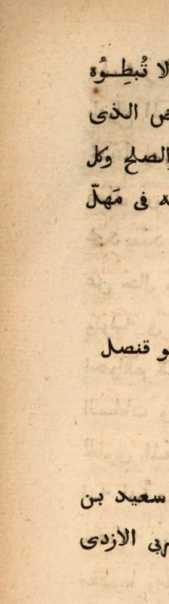 لا تُبطِوُه
ض الذى
الصلح وكل
ه فى مَهلّ
و قنصل
سعيد بن
ربى الازدى